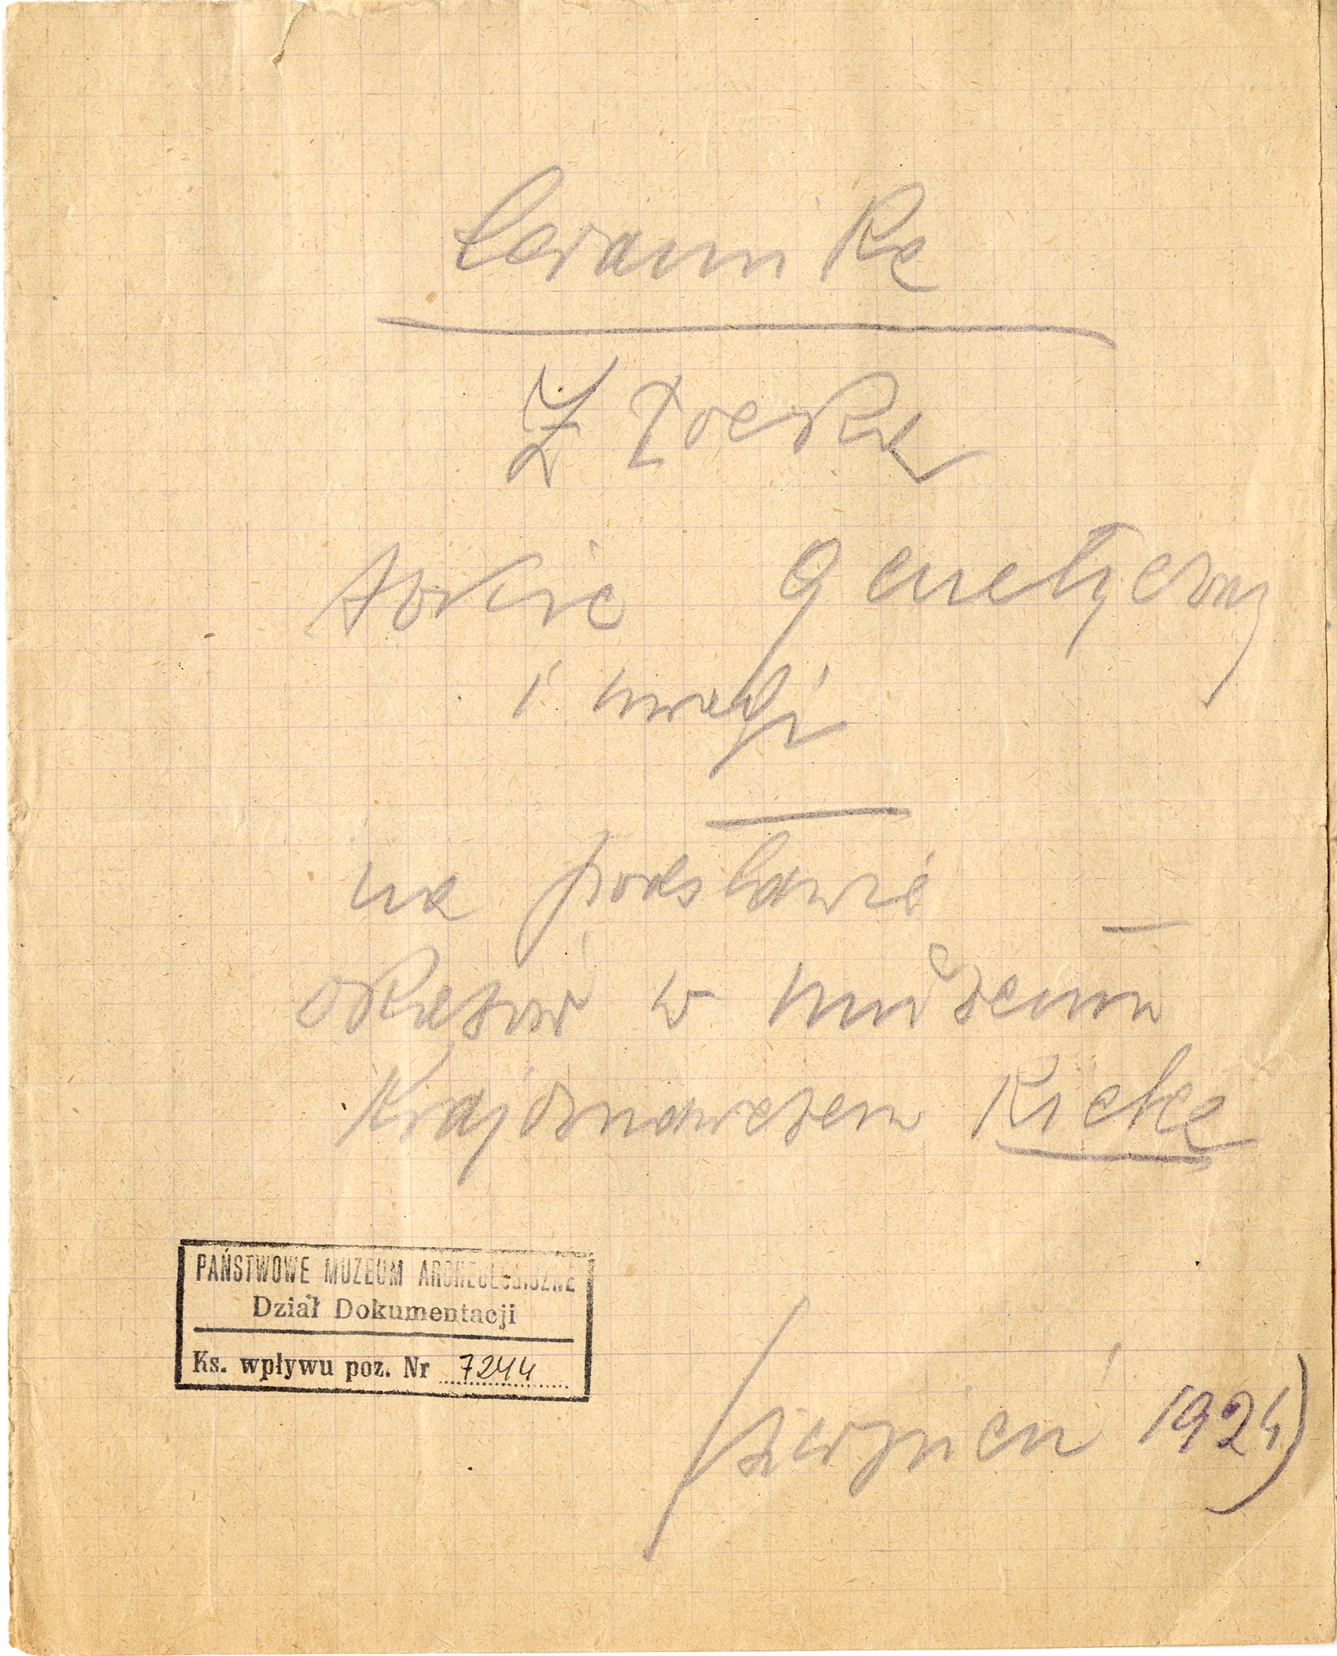 Ceramika
Złocka
szkic genetyczny
i uwagi
na podstawie
okazów w muzeum
Krajoznawczem Kielce
PAŃSTWOWE MUZEUM ARCHEOLOGICZNE
Dział Dokumentacji
Ks. wpływu poz. Nr 7244
(sierpień 1924)